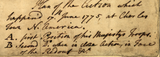 Plan of the Action which
happened 17th June 1775 at Charles
Town N. America.
A. first Position of his Majesty's Troops.
B Second Do. when in
of the Redoubt &c.